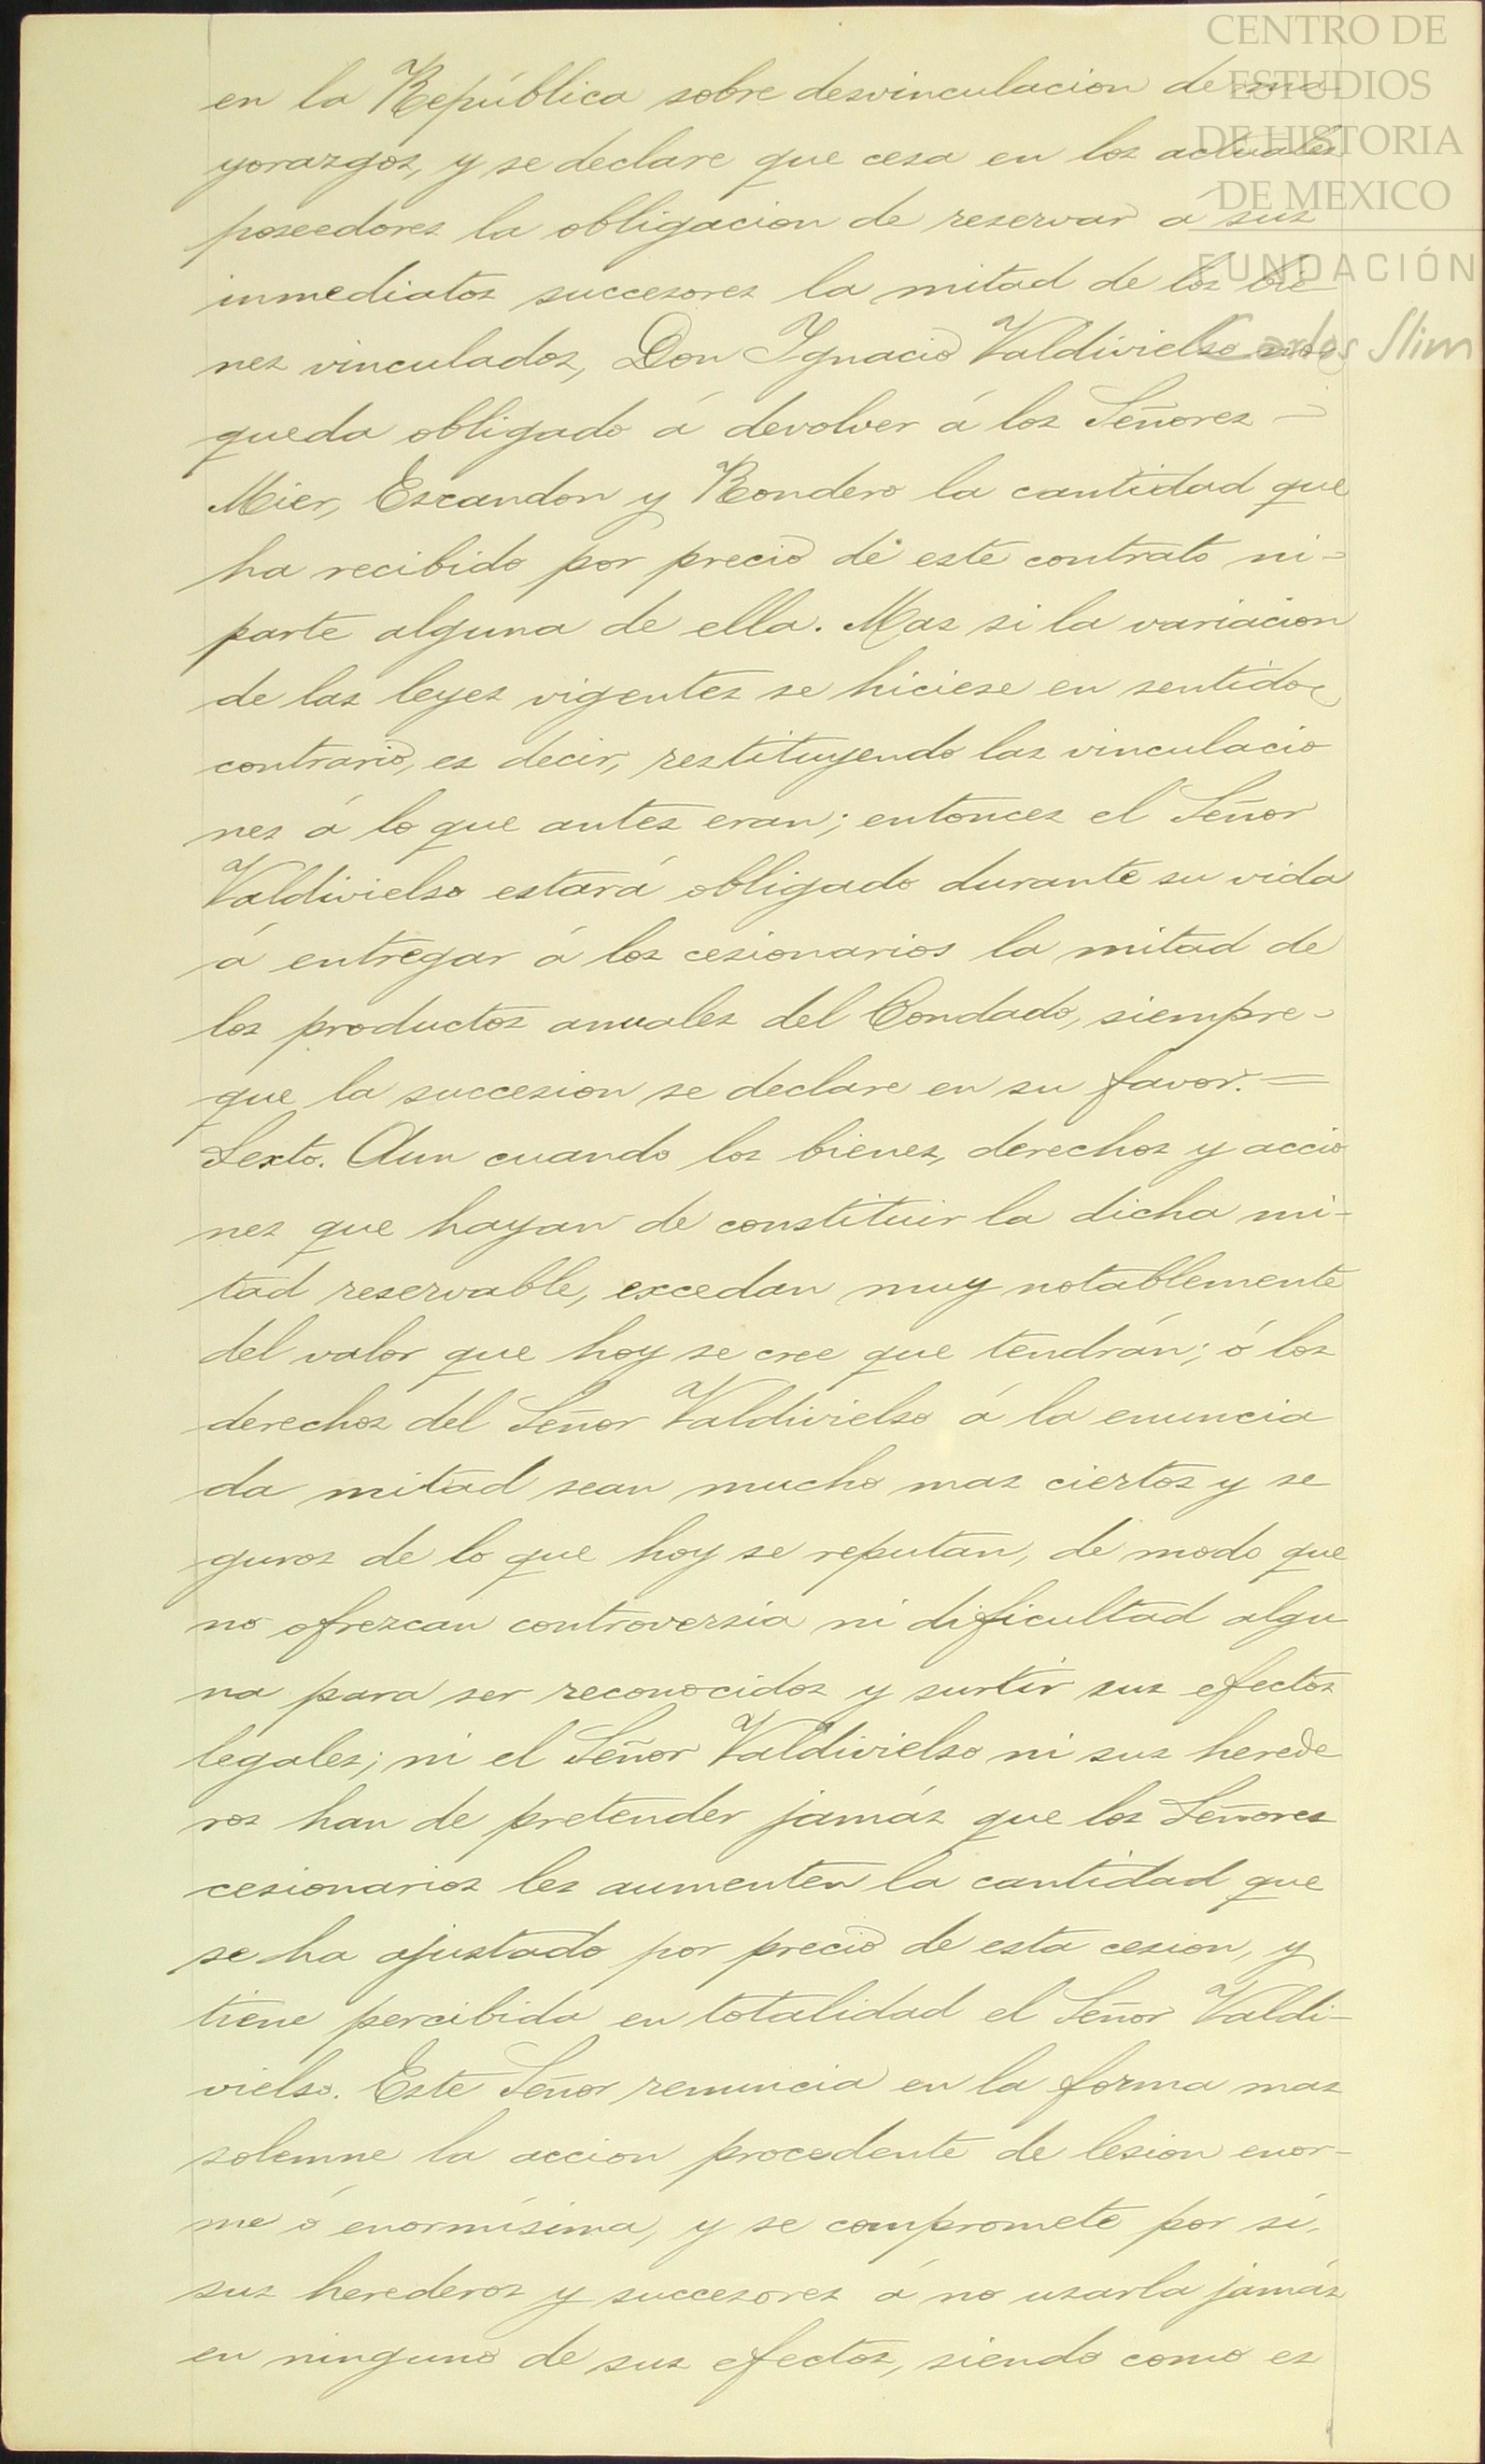 CENTRO DE
ESTUDIOS
DE HISTORIA
DE MEXICO
FUNDACIÓN
Carlos Slim
en la República sobre desvinculacion de ma-
yorazgos, y se declare que cesa en los actuales
poseedores la obligacion de reservar á sus
inmediatos succesores la mitad de los bie-
nes vinculados, Don Ignacio Valdivielso no
queda obligado á devolver á los Señores -
Mier, Escandon y Rondero la cantidad que
ha recibido por precio de este contrato ni -
parte alguna de ella. Mas si la variacion
de las leyes vigentes se hiciese en sentido
contrario, es decir, restituyendo las vinculacio
nes á lo que antes eran; entonces el Señor
Valdivielso estará obligado durante su vida
á entregar á los cesionarios la mitad de
los productos anuales del Condado, siempre -
que la succesion se declare en su favor. =
Sexto. Aun cuando los bienes, derechos y accio
nes que hayan de constituir la dicha mi-
tad reservable, excedan muy notablemente
del valor que hoy se cree que tendrán; ó los
derechos del Señor Valdivielso á la enuncia
da mitad sean mucho mas ciertos y se
guros de lo que hoy se reputan, de modo que
no ofrezcan controversia ni dificultad algu
na para ser reconocidos y surtir sus efectos
legales; ni el Señor Valdivielso ni sus herede
ros han de pretender jamás que los Señores
cesionarios les aumenten la cantidad que
se ha ajustado por precio de esta cesion, y
tiene percibida en totalidad el Señor Valdi-
vielso. Este Señor renuncia en la forma mas
solemne la accion procedente de lesion enor-
me ó enormísima, y se compromete por sí,
sus herederos y succesores á no usarla jamás
en ninguno de sus efectos, siendo como es